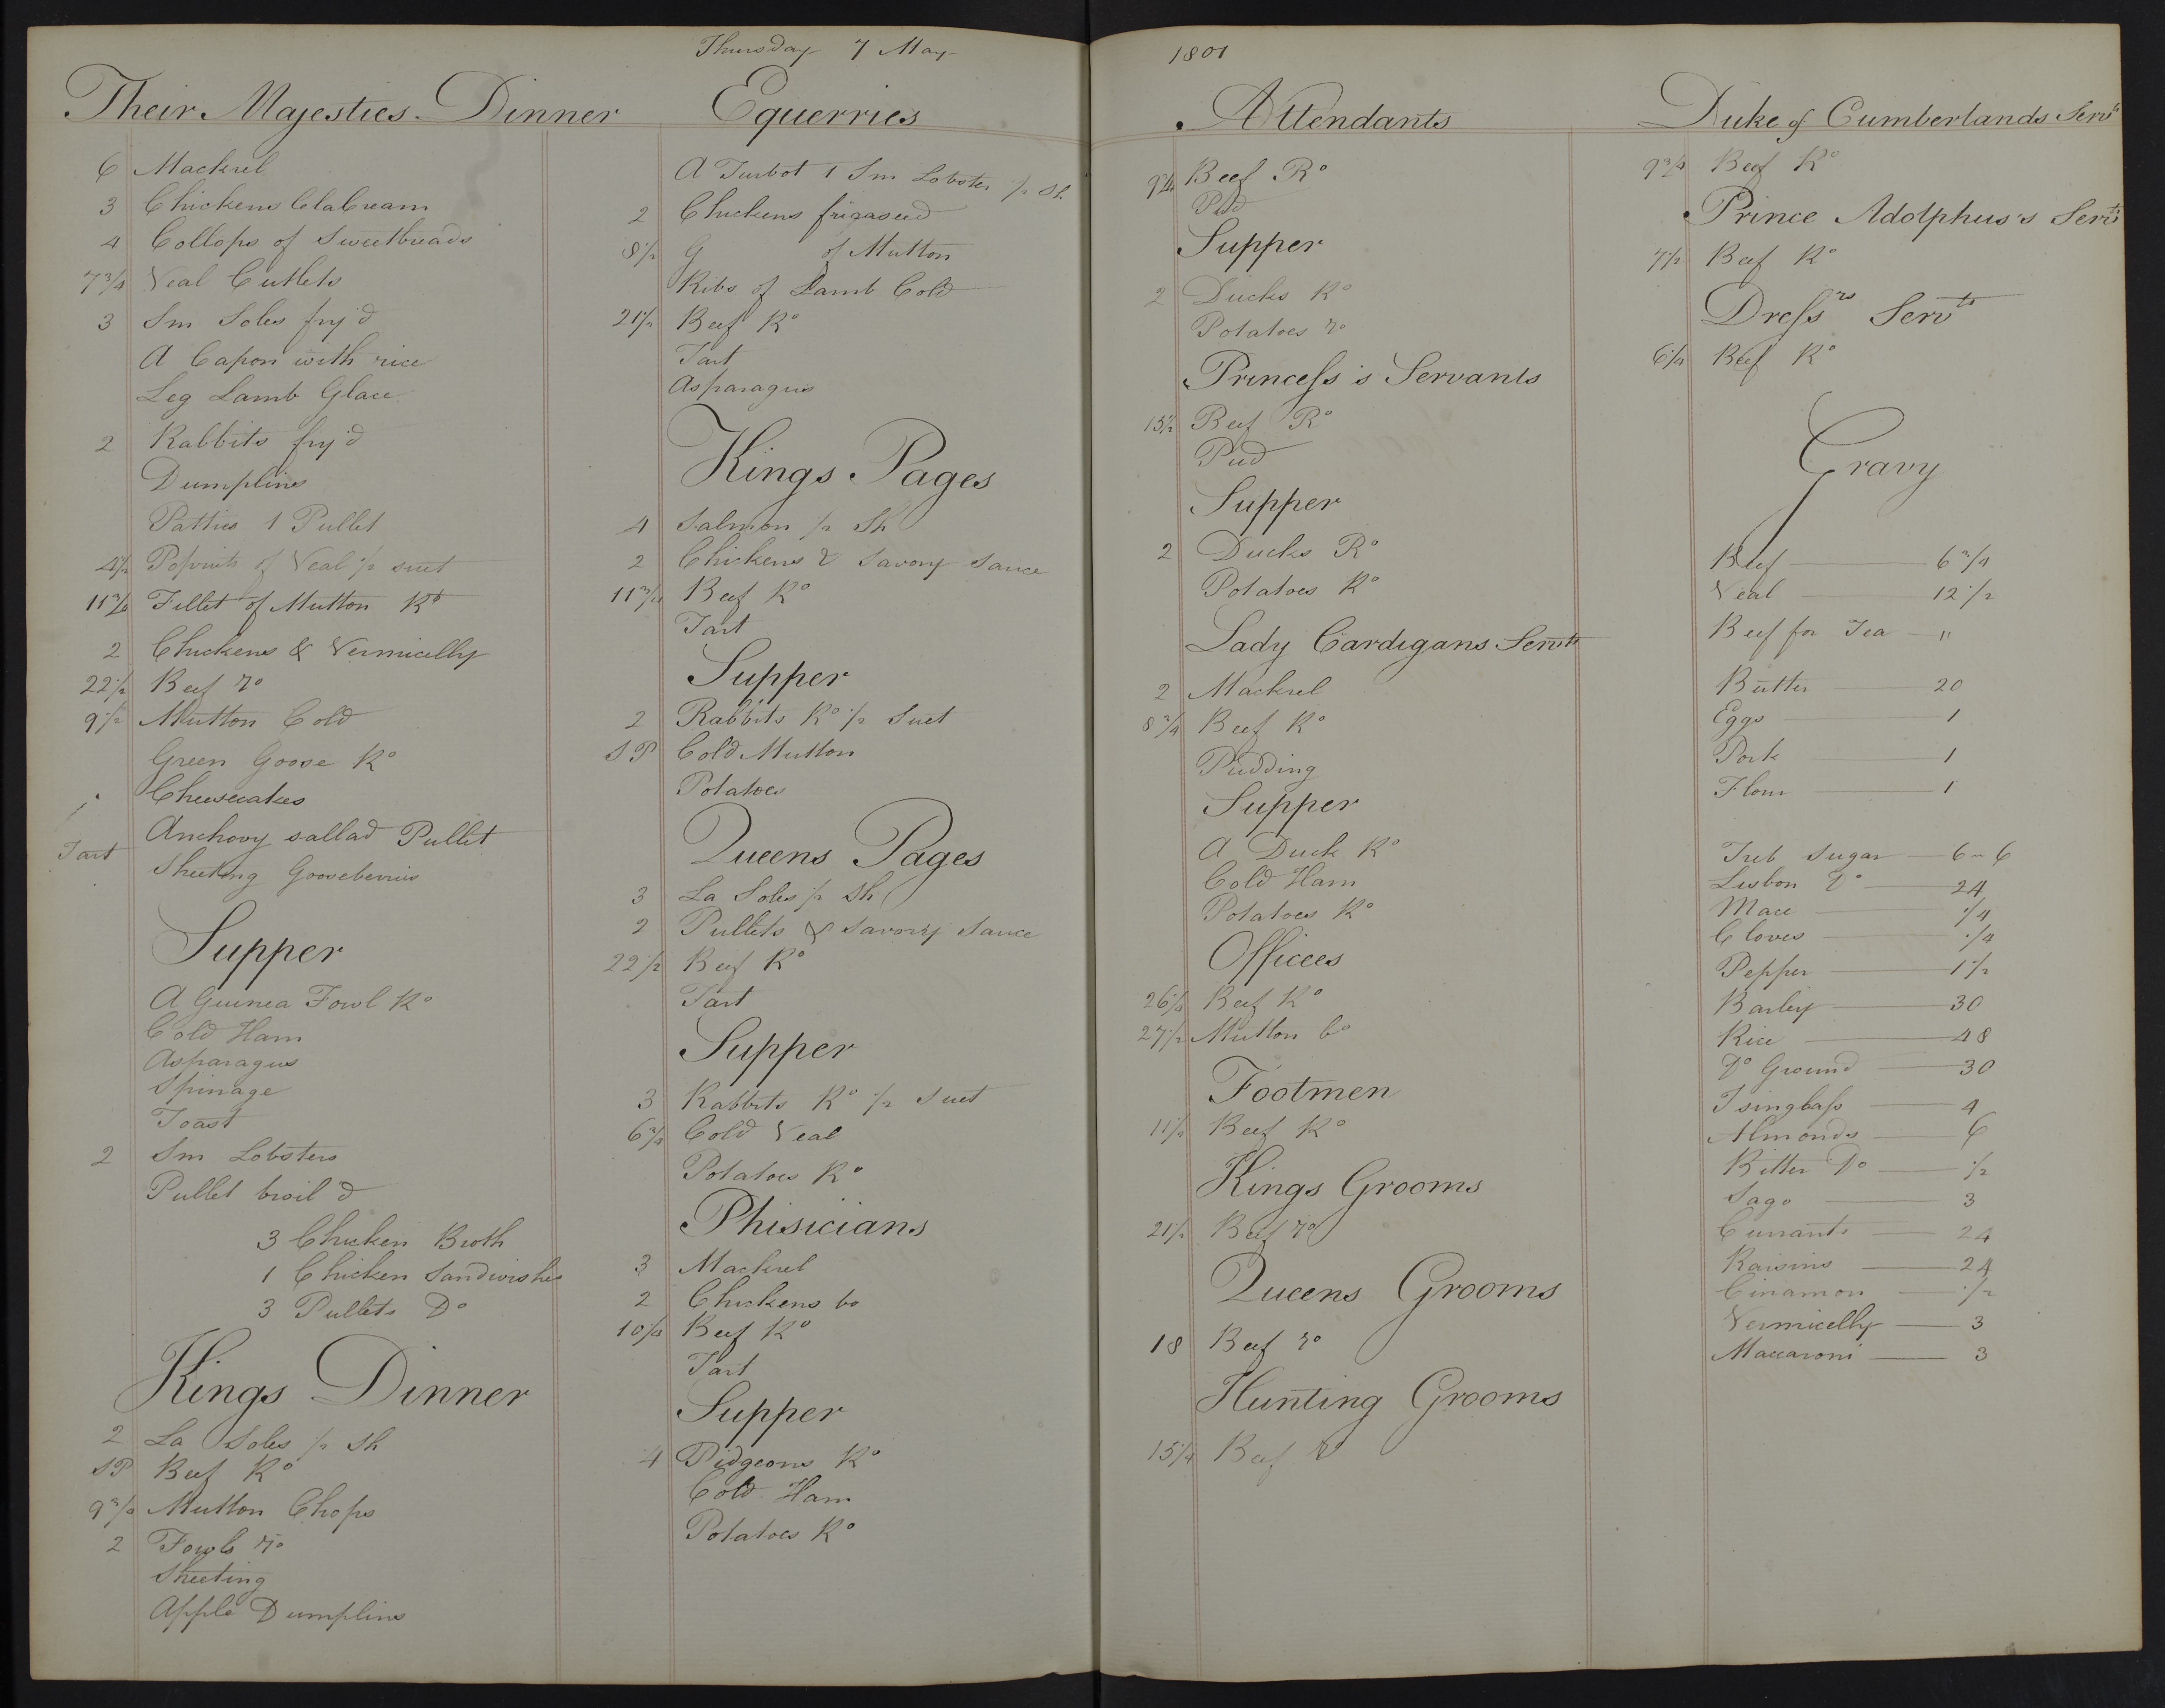 Thursday 7 May
1801
Their Majesties Dinner
6 Mackrel
3 Chickens Cream
4 Collops of Sweetbreads
7 3/4 Veal Cutlets
3 Sm Soles fry'd
A Capon with rice
Leg Lamb Glace
2 Rabbits fry'd
Dumplins
Patties 1 Pullet
of Veal 1/2 suet
11 3/4 Fillet of Mutton Ro
2 Chickens & Vermicelly
22 1/2 Beef Ro
9 1/2 Mutton Cold
Green Goose Ro
Cheesecakes
Anchovy sallad Pullet
Tart Gooseberries
Supper
A Guinea Fowl Ro
Cold Ham
Asparagus
Spinage
Toast
2 Sm Lobsters
Pullet broil'd
3 Chicken Broth
1 Chicken Sandwishes
3 Pullets Do
Kings Dinner
2 La Soles 1/2 Sh
SP Beef Ro
9 3/4 Mutton Chops
2 Fowls Ro
Apple Dumplins
Equerries
A Turbot 1 Sm Lobster 1/2 Sh
2 Chickens frigaseed
8 1/2 of Mutton
Ribs of Lamb Cold
21 1/2 Beef Ro
Tart
Asparagus
Kings Pages
4 Salmon 1/2 Sh
2 Chickens & Savory Sauce
11 3/4 Beef Ro
Tart
Supper
2 Rabbits Ro 1/2 Suet
SP Cold Mutton
Potatoes
Queens Pages
3 La Soles 1/2 Sh
2 Pullets & Savory Sauce
22 1/2 Beef Ro
Tart
Supper
3 Rabbits Ro 1/2 Suet
6 3/4 Cold Veal
Potatoes Ro
Phisicians
3 Mackrel
2 Chickens bo
10 1/4 Beef Ro
Tart
Supper
4 Pidgeons Ro
Cold Ham
Potatoes Ro
Attendants
Beef Ro
Pud
Supper
2 Ducks Ro
Potatoes Ro
Princess's Servants
15 1/2 Beef Ro
Pud
Supper
2 Ducks Ro
Potatoes Ro
Lady Cardigans Servts
2 Mackrel
8 3/4 Beef Ro
Pudding
Supper
A Duck Ro
Cold Ham
Potatoes Ro
Offices
26 1/4 Beef Ro
27 1/2 Mutton bo
Footmen
11 1/2 Beef Ro
Kings Grooms
21 1/2 Beef Ro
Queens Grooms
18 Beef Ro
Hunting Grooms
15 1/4 Beef Ro
Duke of Cumberlands Servts
9 3/4 Beef Ro
Prince Adolphus's Servts
7 1/2 Beef Ro
Dressrs Servts
6 1/4 Beef Ro
Gravy
Beef 6 3/4
Veal 12 1/2
Beef for Tea "
Butter 20
Eggs 1
Pork 1
Flour 1
Treb Sugar 6 - 6
Lisbon Do 24
Mace 1/4
Cloves 1/4
Pepper 1 1/2
Barley 30
Rice 48
Do Ground 30
Isinglass 4
Almonds 6
Bitter Do 1/2
Sago 3
Currants 24
Raisins 24
Cinamon 1/2
Vermicelly 3
Maccaroni 3